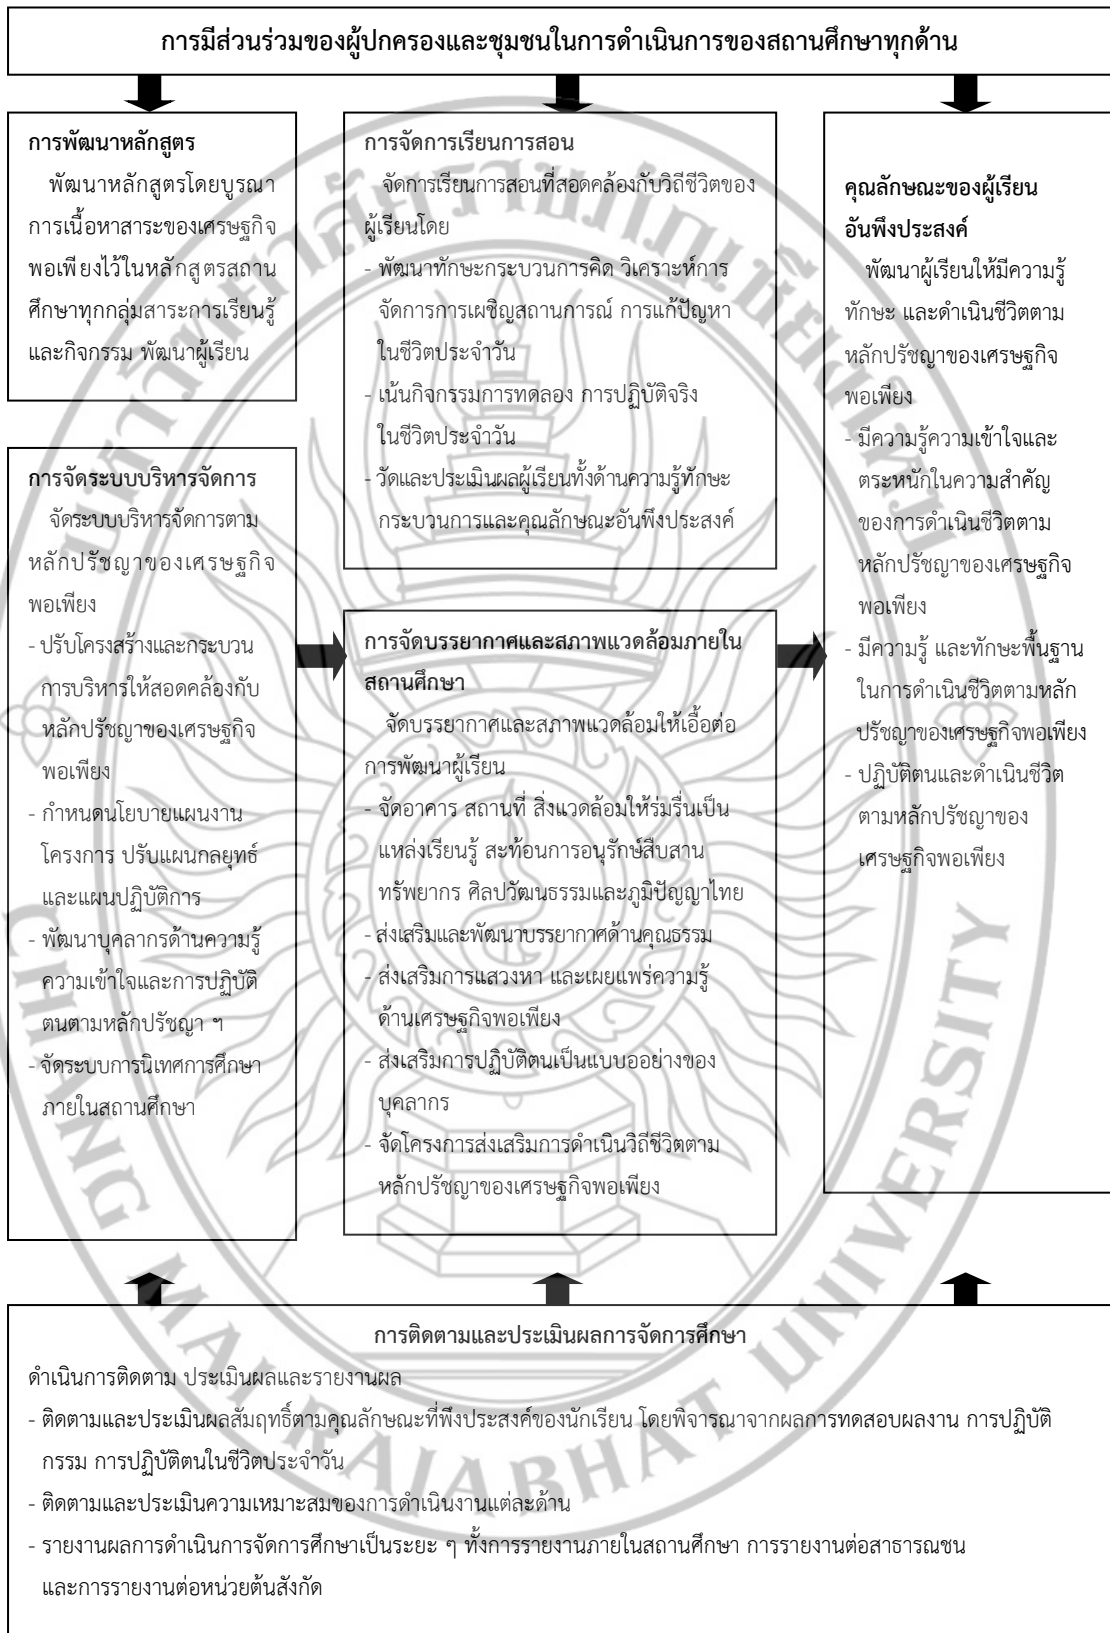 การมีส่วนร่วมของผู้ปกครองและชุมชนในการดำเนินการของสถานศึกษาทุกด้าน
การพัฒนาหลักสูตร
พัฒนาหลักสูตรโดยบูรณา
การเนื้อหาสาระของเศรษฐกิจ
พอเพียงไว้ในหลักสูตรสถาน
ศึกษาทุกกลุ่มสาระการเรียนรู้
และกิจกรรม พัฒนาผู้เรียน
การจัดระบบบริหารจัดการ
จัดระบบบริหารจัดการตาม
หลักปรัชญาของเศรษฐกิจ
พอเพียง
- ปรับโครงสร้างและกระบวน
การบริหารให้สอดคล้องกับ
หลักปรัชญาของเศรษฐกิจ
พอเพียง
- กำหนดนโยบายแผนงาน
โครงการ ปรับแผนกลยุทธ์
และแผนปฏิบัติการ
- พัฒนาบุคลากรด้านความรู้
ความเข้าใจและการปฏิบัติ
ตนตามหลักปรัชญา ฯ
- จัดระบบการนิเทศการศึกษา
ภายในสถานศึกษา
การจัดการเรียนการสอน
จัดการเรียนการสอนที่สอดคล้องกับวิถีชีวิตของ
ผู้เรียนโดย
- พัฒนาทักษะกระบวนการคิด วิเคราะห์การ
จัดการการเผชิญสถานการณ์ การแก้ปัญหา
ในชีวิตประจำวัน
- เน้นกิจกรรมการทดลอง การปฏิบัติจริง
ในชีวิตประจำวัน
- วัดและประเมินผลผู้เรียนทั้งด้านความรู้ทักษะ
กระบวนการและคุณลักษณะอันพึงประสงค์
การจัดบรรยากาศและสภาพแวดล้อมภายใน
สถานศึกษา
จัดบรรยากาศและสภาพแวดล้อมให้เอื้อต่อ
การพัฒนาผู้เรียน
- จัดอาคาร สถานที่ สิ่งแวดล้อมให้ร่มรื่นเป็น
แหล่งเรียนรู้ สะท้อนการอนุรักษ์สืบสาน
ทรัพยากร ศิลปวัฒนธรรมและภูมิปัญญาไทย
- ส่งเสริมและพัฒนาบรรยากาศด้านคุณธรรม
- ส่งเสริมการแสวงหา และเผยแพร่ความรู้
ด้านเศรษฐกิจพอเพียง
- ส่งเสริมการปฏิบัติตนเป็นแบบออย่างของ
บุคลากร
- จัดโครงการส่งเสริมการดำเนินวิถีชีวิตตาม
หลักปรัชญาของเศรษฐกิจพอเพียง
คุณลักษณะของผู้เรียน
อันพึงประสงค์
พัฒนาผู้เรียนให้มีความรู้
ทักษะ และดำเนินชีวิตตาม
หลักปรัชญาของเศรษฐกิจ
พอเพียง
- มีความรู้ความเข้าใจและ
ตระหนักในความสำคัญ
ของการดำเนินชีวิตตาม
หลักปรัชญาของเศรษฐกิจ
พอเพียง
- มีความรู้ และทักษะพื้นฐาน
ในการดำเนินชีวิตตามหลัก
ปรัชญาของเศรษฐกิจพอเพียง
- ปฏิบัติตนและดำเนินชีวิต
ตามหลักปรัชญาของ
เศรษฐกิจพอเพียง
การติดตามและประเมินผลการจัดการศึกษา
ดำเนินการติดตาม ประเมินผลและรายงานผล
- ติดตามและประเมินผลสัมฤทธิ์ตามคุณลักษณะที่พึงประสงค์ของนักเรียน โดยพิจารณาจากผลการทดสอบผลงาน การปฏิบัติ
กรรม การปฏิบัติตนในชีวิตประจำวัน
- ติดตามและประเมินความเหมาะสมของการดำเนินงานแต่ละด้าน
- รายงานผลการดำเนินการจัดการศึกษาเป็นระยะ ๆ ทั้งการรายงานภายในสถานศึกษา การรายงานต่อสาธารณชน
และการรายงานต่อหน่วยต้นสังกัด
มหาวิทยาลัยราชภัฏเชียงใหม่
CHIANG MAI RAJABHAT UNIVERSITY